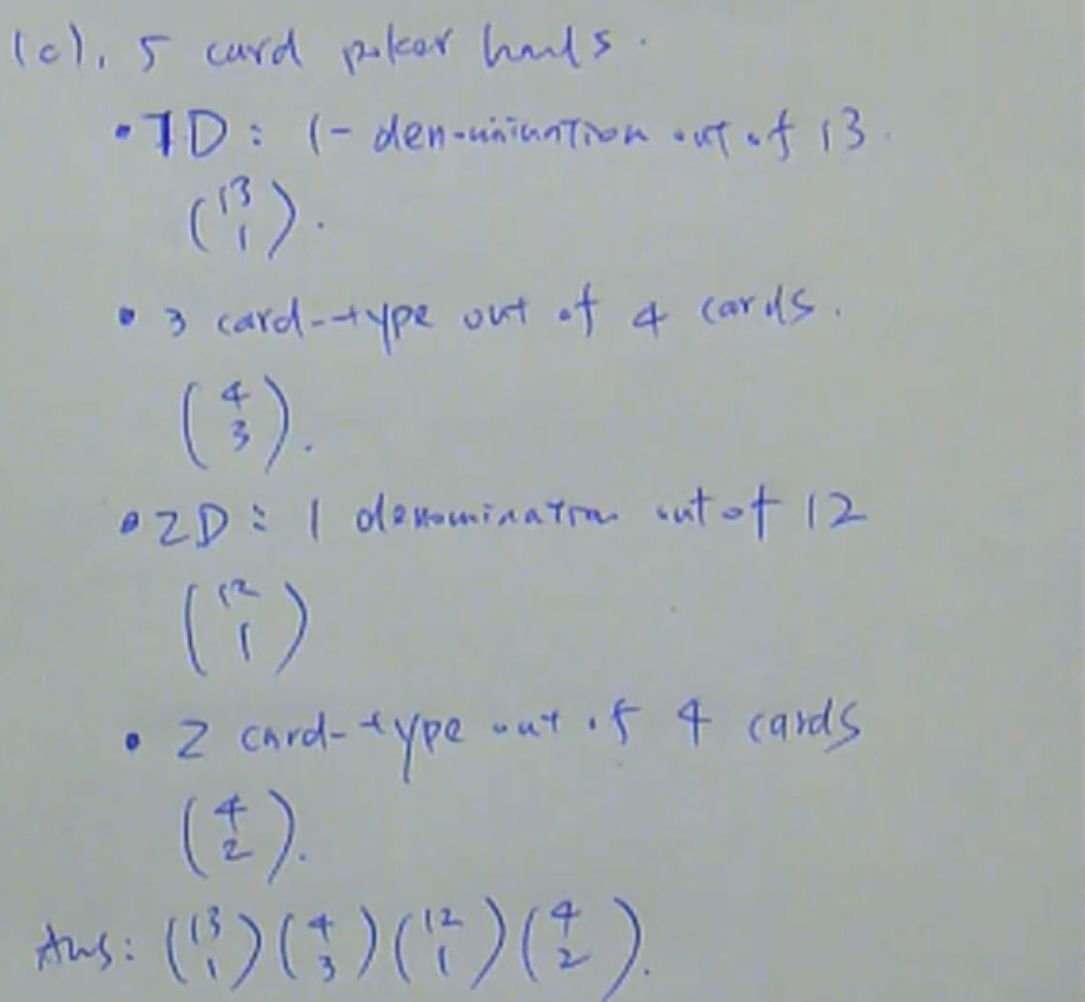 (c), 5 card poker hands.
• 1D: 1- denomination out of 13.
(13 1).
• 3 card-type out of 4 cards.
(4 3).
• 2D: 1 denomination out of 12
(12 1)
• 2 card-type out of 4 cards
(4 2).
Ans: (13 1)(4 3)(12 1)(4 2).